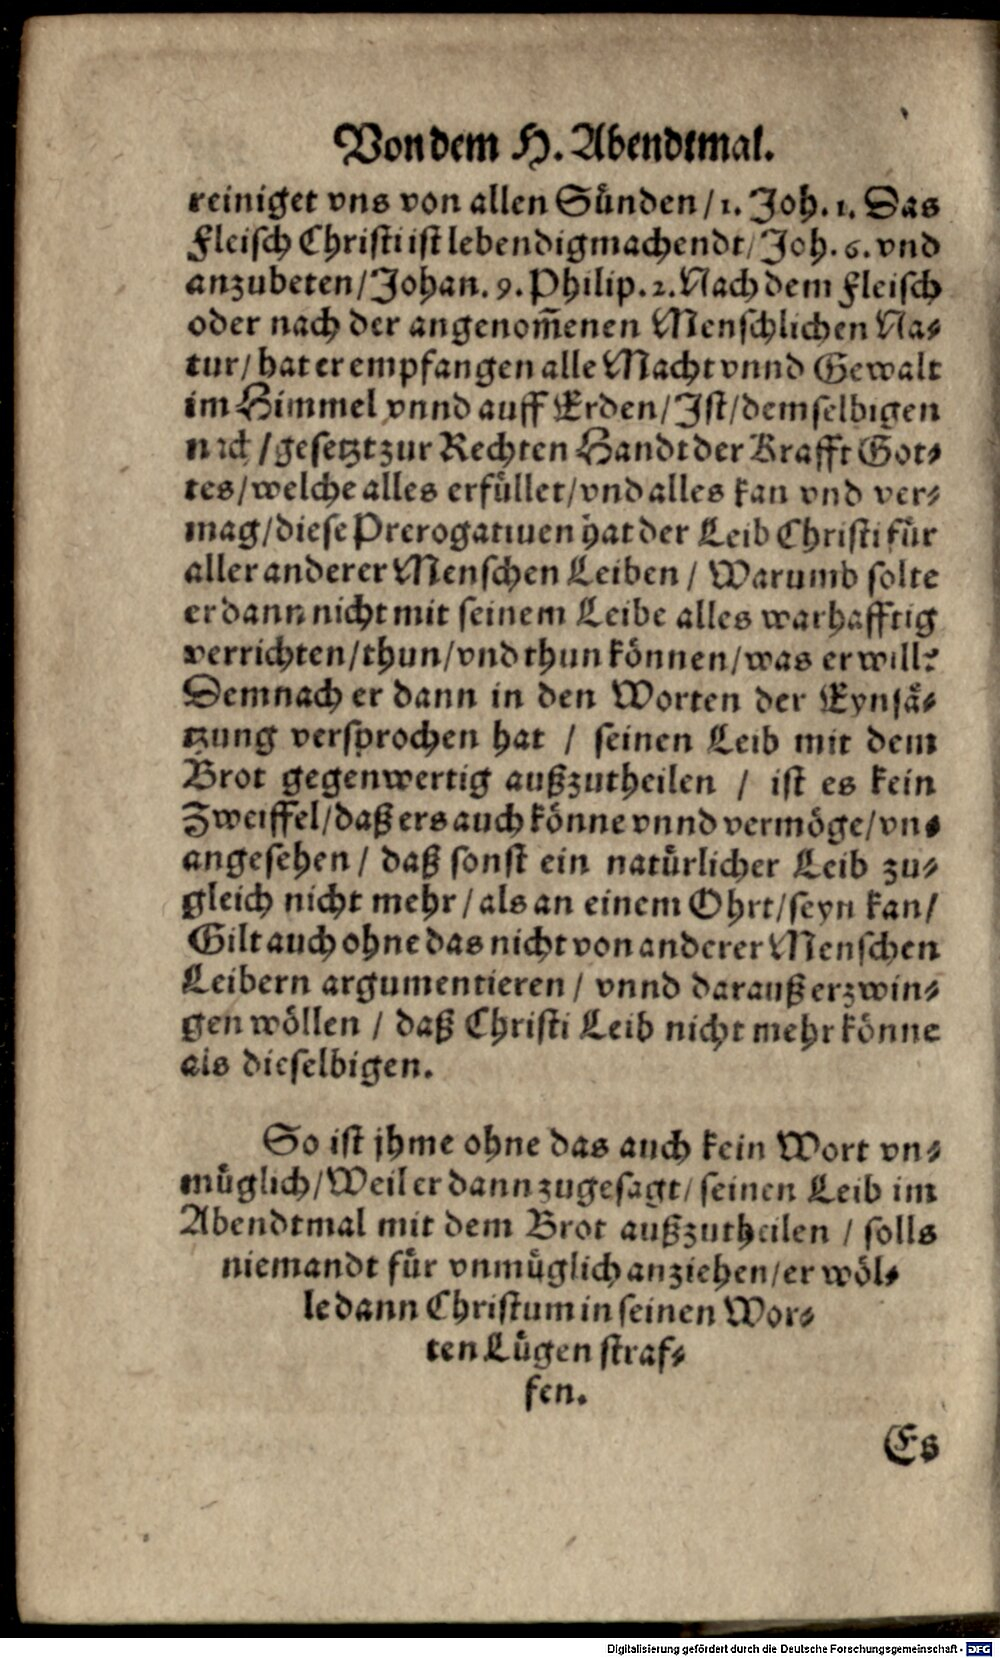 Von dem H. Abendtmal.
reiniget vns von allen Sünden / 1. Joh. 1. Das
Fleisch Christi ist lebendigmachendt / Joh. 6. vnd
anzubeten / Johan. 9. Philip. 2. Nach dem Fleisch
oder nach der angenom̃enen Menschlichen Na-
tur / hat er empfangen alle Macht vnnd Gewalt
im Himmel vnnd auff Erden / Ist / demselbigen
nach / gesetzt zur Rechten Handt der Krafft Got-
tes / welche alles erfüllet / vnd alles kan vnd ver-
mag / diese Prerogatiuen hat der Leib Christi für
aller anderer Menschen Leiben / Warumb solte
er dann nicht mit seinem Leibe alles warhafftig
verrichten / thun / vnd thun können / was er will?
Demnach er dann in den Worten der Eynsä-
tzung versprochen hat / seinen Leib mit dem
Brot gegenwertig außzutheilen / ist es kein
Zweiffel / daß ers auch könne vnnd vermöge / vn-
angesehen / daß sonst ein natürlicher Leib zu-
gleich nicht mehr / als an einem Ohrt / seyn kan /
Gilt auch ohne das nicht von anderer Menschen
Leibern argumentieren / vnnd darauß erzwin-
gen wöllen / daß Christi Leib nicht mehr könne
als dieselbigen.
So ist jhme ohne das auch kein Wort vn-
müglich / Weil er dann zugesagt / seinen Leib im
Abendtmal mit dem Brot außzutheilen / solls
niemandt für vnmüglich anziehen / er wöl-
le dann Christum in seinen Wor-
ten Lügen straf-
fen.
Es
Digitalisierung gefördert durch die Deutsche Forschungsgemeinschaft - DFG